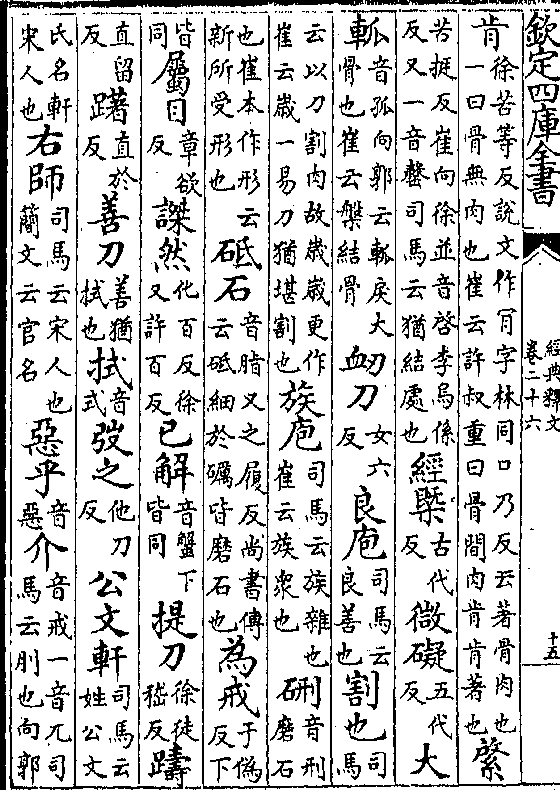 欽定四庫全書
經典釋文
卷二十六
十五
肯徐苦等反說文作肎字林同口乃反云著骨肉也一曰骨無肉也崔云許叔重曰骨間肉肯肯著也綮
苦挺反崔向徐並音啓李烏係反又一音罄司馬云猶結處也經㮣古代反微礙五代反大
軱音孤向郭云軱戾大骨也崔云槃結骨衂刀女六反良庖司馬云良善也割也司馬
云以刀割肉故歲歲更作崔云歲一易刀猶堪割也族庖司馬云族雜也崔云族衆也硎音刑磨石
也崔本作形云新所受形也砥石音脂又之履反尚書傳云砥細於礪皆磨石也為戒于偽反下
皆同屬目章欲反謋然化百反徐又許百反已解音蟹下皆同提刀徐徒嵇反躊
直留反躇直於反善刀善猶拭也拭音式弢之他刀反公文軒司馬云姓公文
氏名軒宋人也右師司馬云宋人也簡文云官名惡乎音惡介音戒一音兀司馬云刖也向郭